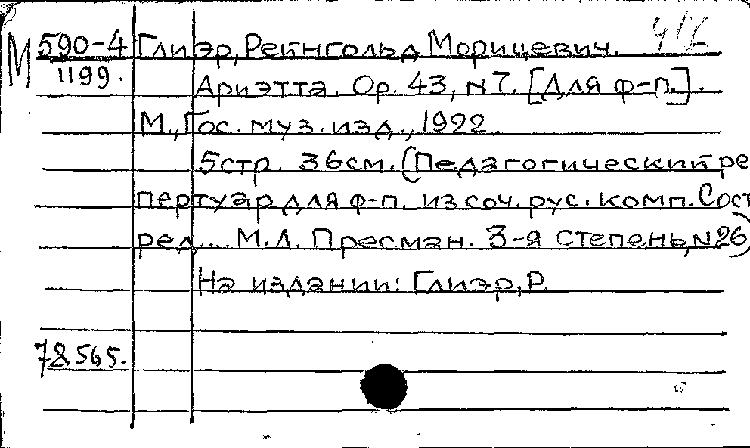 М 590-4 Глиэр, Рейнгольд Морицевич.
1199. Ариэтта. Op. 43, N 7. [Для ф-п.].
М., Гос. муз. изд., 1922.
5 стр. 36 см. (Педагогический ре
пертуар для ф-п. из соч. рус. комп. Сост
ред... М. Л. Пресман. 3-я степень, N 26)
На издании: Глиэр, Р.
78565.